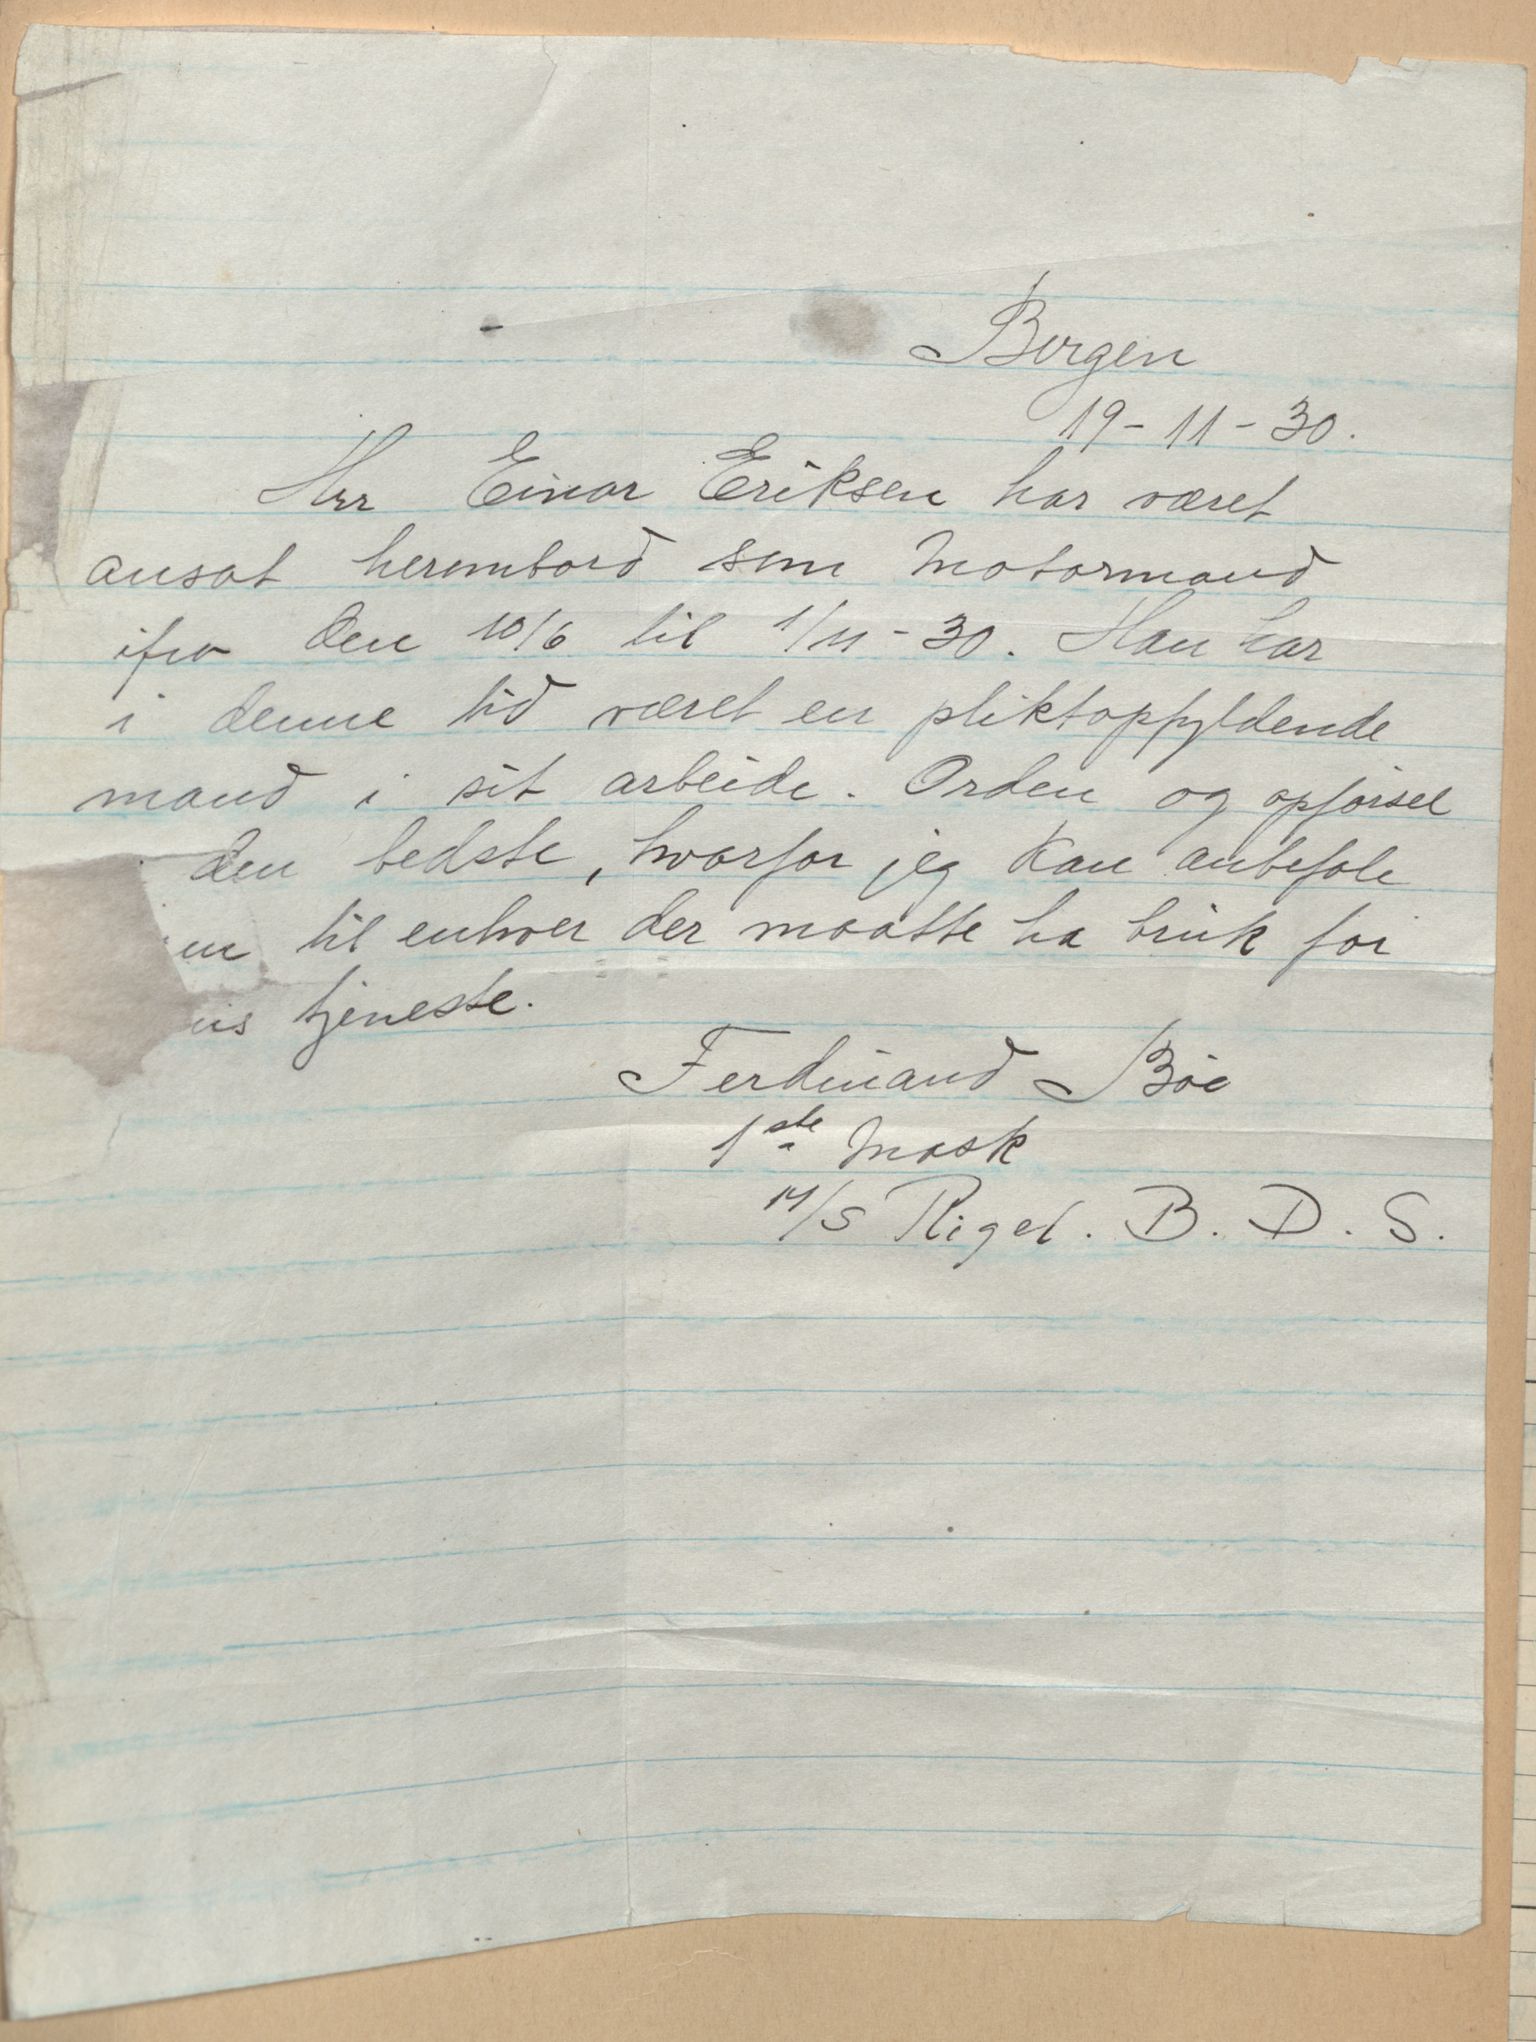 Bergen
19-11-30.
Herr Einar Eriksen har været
ansat herombord som Motormand
ifra den 10/6 til 1/11-30. Han har
i denne tid været en pliktopfyldende
mand i sit arbeide. Orden og opførsel
den bedste, hvorfor jeg kan anbefale
til enhver der maatte ha bruk for
tjeneste.
Ferdinand Bøe
1ste Mask
M/S Rigel. B. D. S.